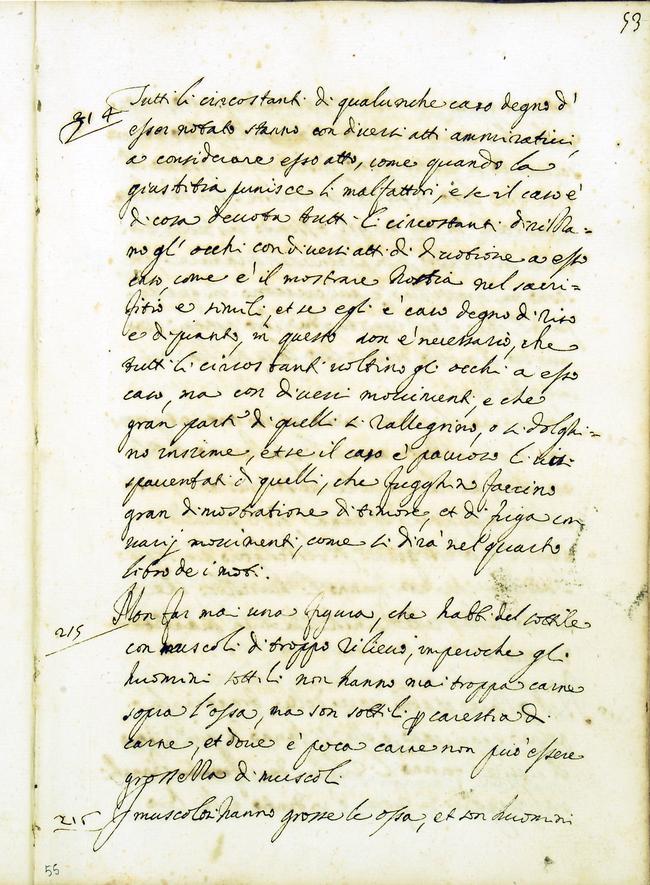 53
214 Tutti li circostanti di qualunche caso degno d'
esser notato stanno con diversi atti ammirativi,
a considerare esso atto, come quando la
giustitia punisce li malfattori, e se il caso è
di cosa devota tutti li circostanti dirizza=
no gl' occhi con diversi atti di divotione a esso
caso, come è il mostrare hostia nel sacri=
fitio e simili, et se egli è caso degno di riso
e di pianto, in questo non è necessario, che
tutti li circostanti voltino gli occhi a esso
caso, ma con diversi movimenti, e che
gran parte di quelli si rallegrino, o si dolghi=
no insieme, et se il caso è pauroso li visi
spaventati di quelli, che fugghino faccino
gran dimostratione di timore, et di fuga con
varij movimenti, come si dirà nel quarto
libro de i moti.
215 Non far mai una figura, che habbi del sottile
con muscoli di troppo rilievo, imperoche gli
huomini sottili non hanno mai troppa carne
sopra l'ossa, ma son sottili per carestia di
carne, et dove è poca carne non può essere
grossezza di muscoli.
215 I muscolosi hanno grosse le ossa, et son huomini
55